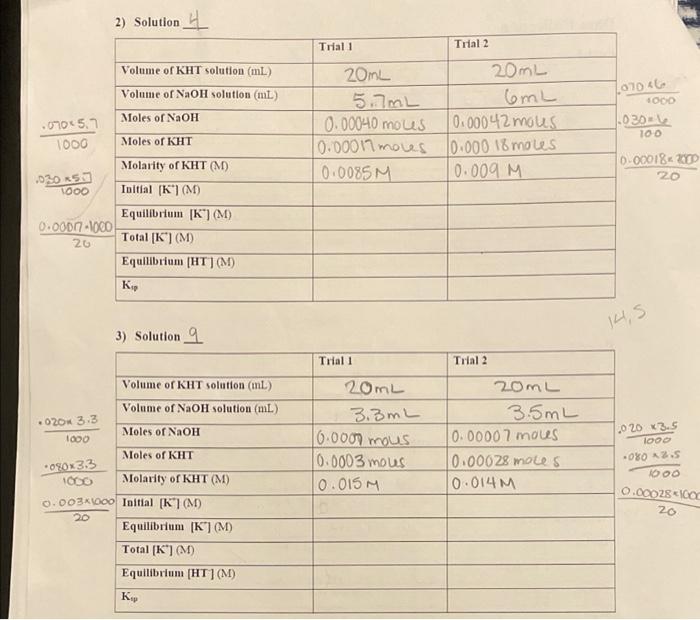 2) Solution 4
Trial 1 Trial 2
Volume of KHT solution (mL) 20mL 20mL
Volume of NaOH solution (mL) 5.7mL 6mL
Moles of NaOH 0.00040 moles 0.00042 moles
Moles of KHT 0.00017 moles 0.00018 moles
Molarity of KHT (M) 0.0085 M 0.009 M
Initial [K⁺] (M)
Equilibrium [K⁺] (M)
Total [K⁺] (M)
Equilibrium [HT⁻] (M)
Ksp
.070×5.7
1000
.030×5.7
1000
0.00017×1000
20
.070×6
1000
.030×6
100
0.00018×1000
20
14,5
3) Solution 9
Trial 1 Trial 2
Volume of KHT solution (mL) 20mL 20mL
Volume of NaOH solution (mL) 3.3mL 3.5mL
Moles of NaOH 0.00007 moles
Moles of KHT 0.0003 moles 0.00028 moles
Molarity of KHT (M) 0.015 M 0.014 M
Initial [K⁺] (M)
Equilibrium [K⁺] (M)
Total [K⁺] (M)
Equilibrium [HT⁻] (M)
Ksp
.020×3.3
1000
.080×3.3
1000
0.003×1000
20
.020×3.5
1000
.080×3.5
1000
0.00028×1000
20